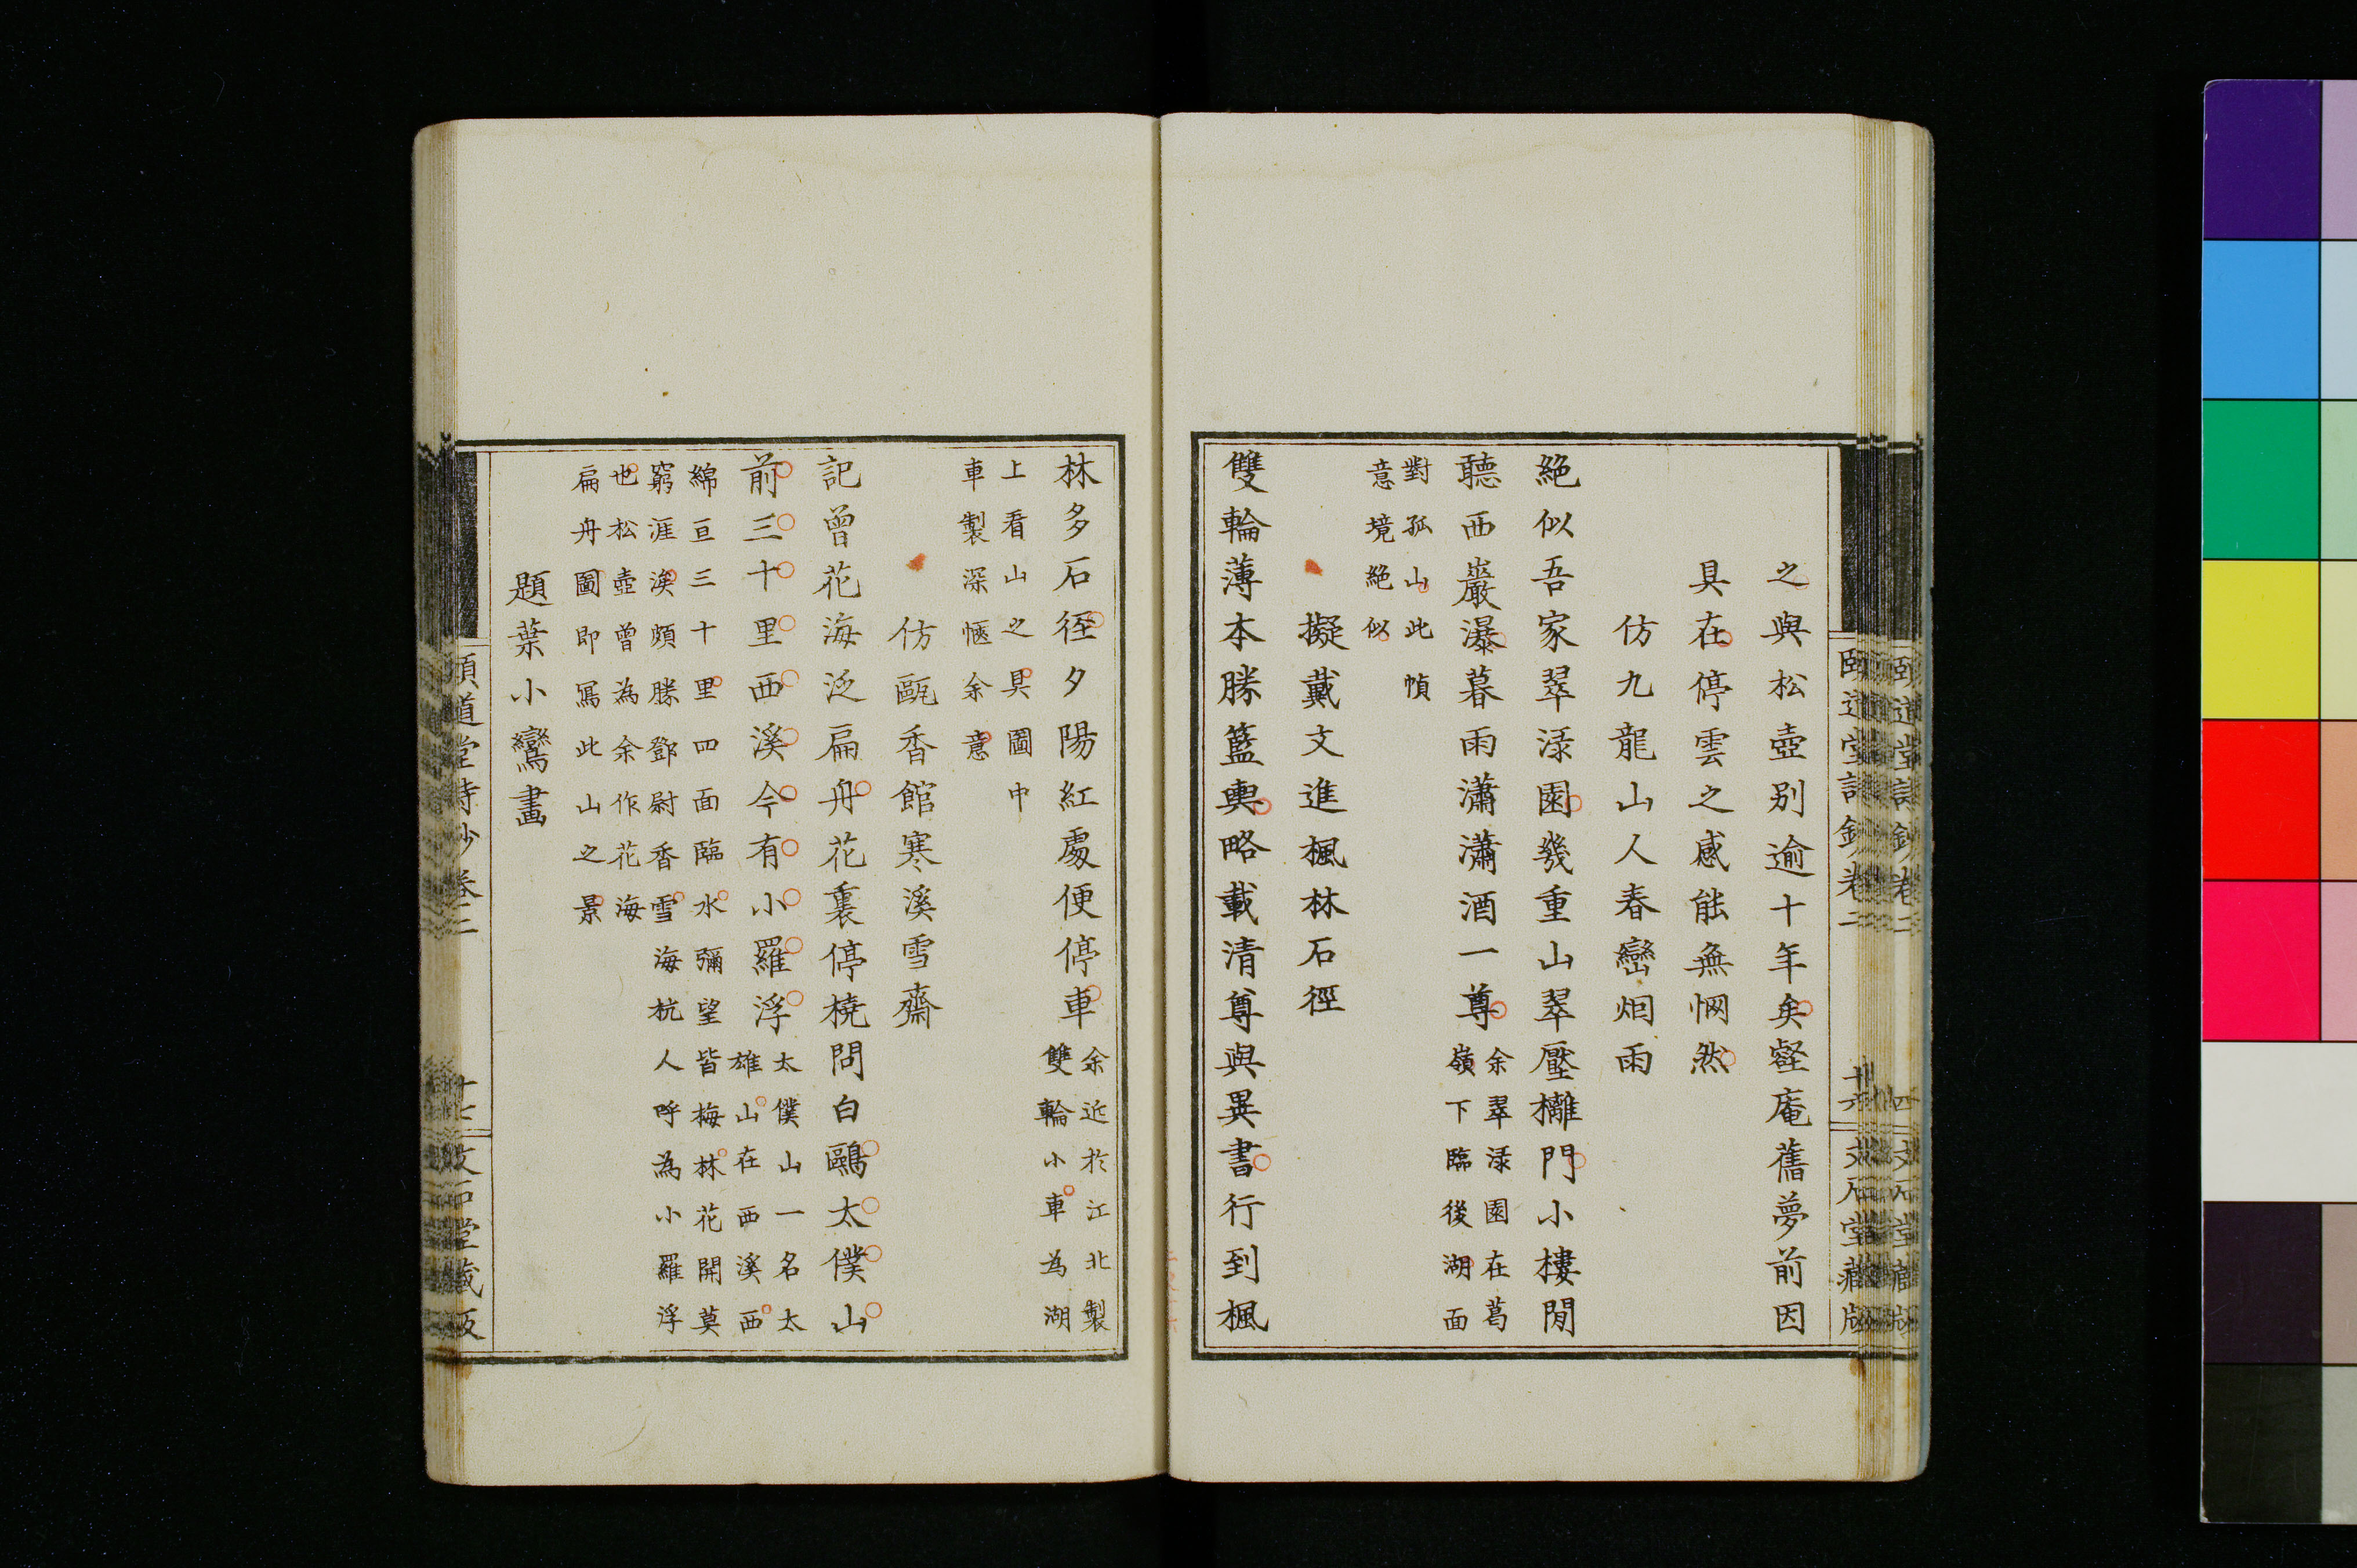 之與松壺別逾十年矣壑庵舊夢前因
具在停雲之感能無惘然
仿九龍山人春巒烟雨
絕似吾家翠渌園幾重山翠壓欐門小樓閒
聽西巖瀑暮雨瀟瀟酒一尊
余翠渌園在葛
嶺下臨後湖面
對孤山此幀
意境絕似
擬戴文進楓林石徑
雙輪薄本勝籃輿略載清尊與異書行到楓
林多石徑夕陽紅處便停車
余近於江北製
雙輪小車為湖
上看山之具圖中
車製深愜余意
仿甌香館寒溪雪齋
記曾花海泛扁舟花裏停橈問白鷗太僕山
前三十里西溪今有小羅浮
太僕山一名太
雄山在西溪西
綿亘三十里四面臨水彌望皆梅林花開莫
窮涯涘頗勝鄧尉香雪海杭人呼為小羅浮
也松壺曾為余作花海
扁舟圖即寫此山之景
題葉小鸞畫
頤道堂詩鈔卷二
十七
文石堂藏版